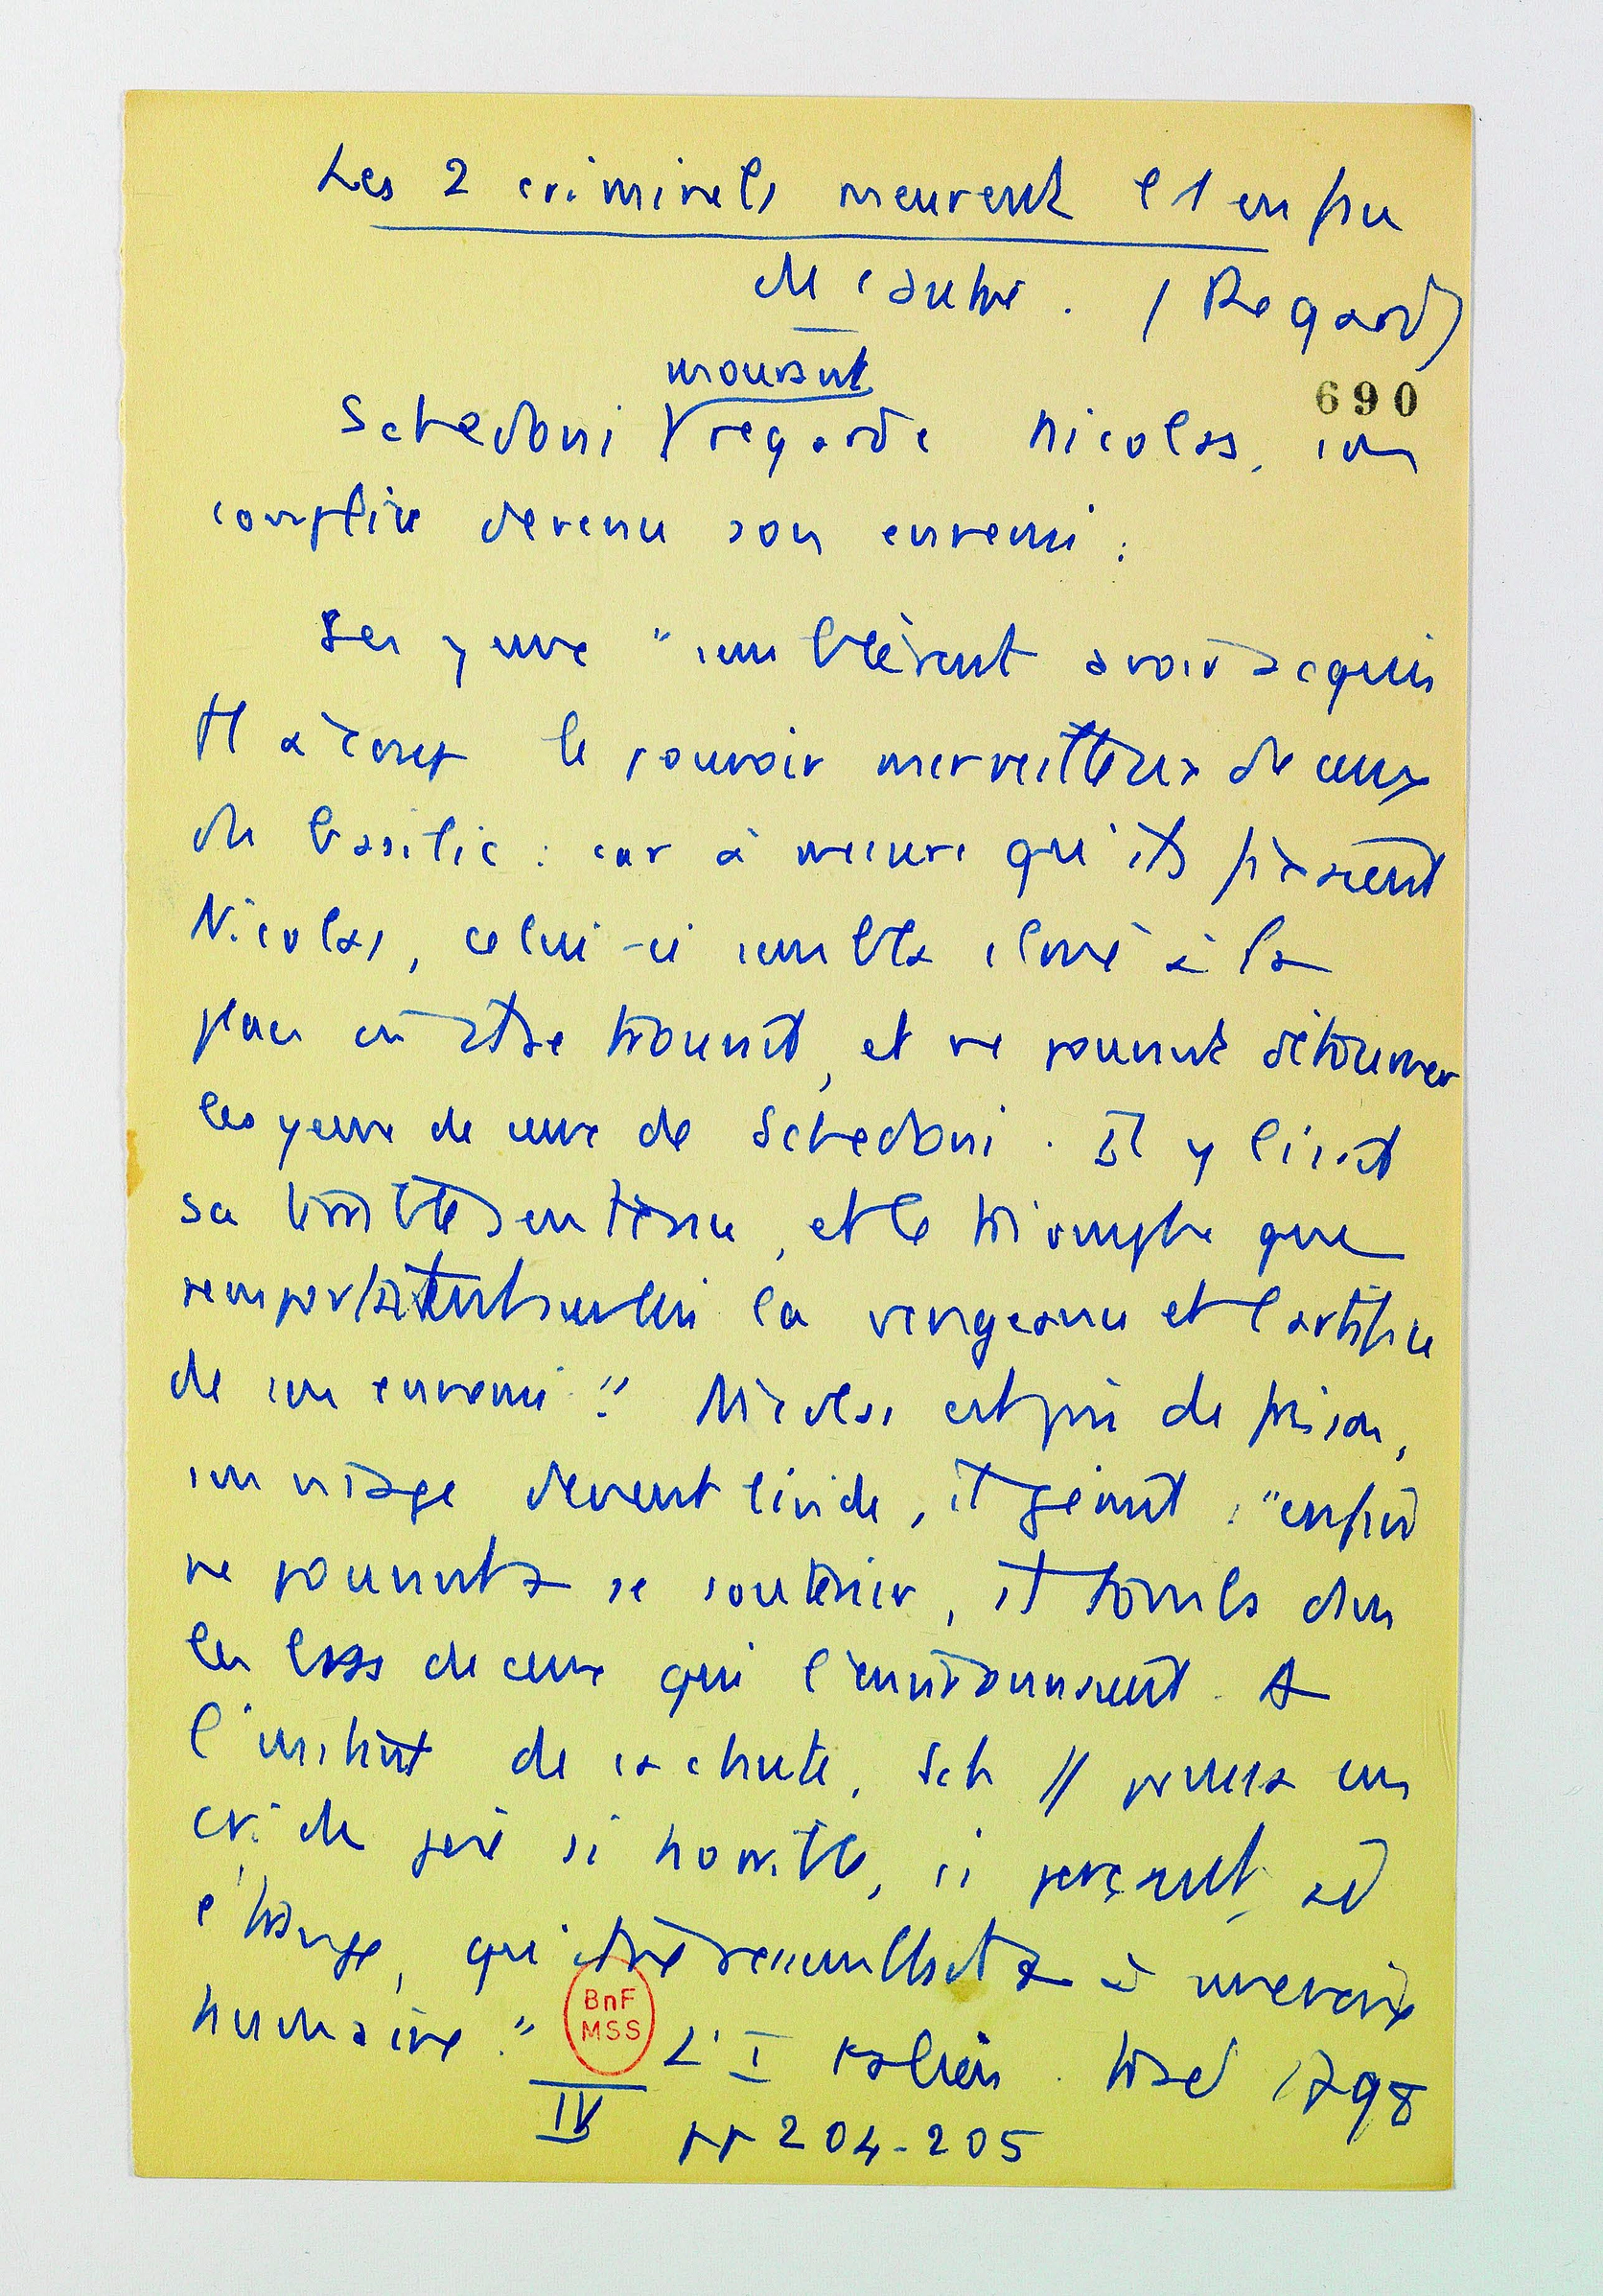 Les 2 criminels meurent l'1 en face
de l'autre. (Regard)
mourant
690
Schedoni regarde Nicolas, son
complice devenu son ennemi :
Ses yeux "semblèrent avoir acquis
tt à coup le pouvoir merveilleux de ceux
du basilic : car à mesure qu'ils fixaient
Nicolas, celui-ci sembla cloué à la
place où il se trouvait, et ne pouvait détourner
les yeux de ceux de Schedoni. Il y lisait
sa terrible sentence, et le triomphe que
remportaient sur lui la vengeance et l'artifice
de son ennemi." Nicolas est pris de frisson,
son visage devient livide, il gémit : "enfin
ne pouvant se soutenir, il tomba dans
les bras de ceux qui l'environnaient. A
l'instant de sa chute, Sch // poussa un
cri de joie si horrible, si perçant, si
étrange, qui ne ressemblait à une voix
humaine." L'Italien. trad 1798
BnF
MSS
IV pp 204-205